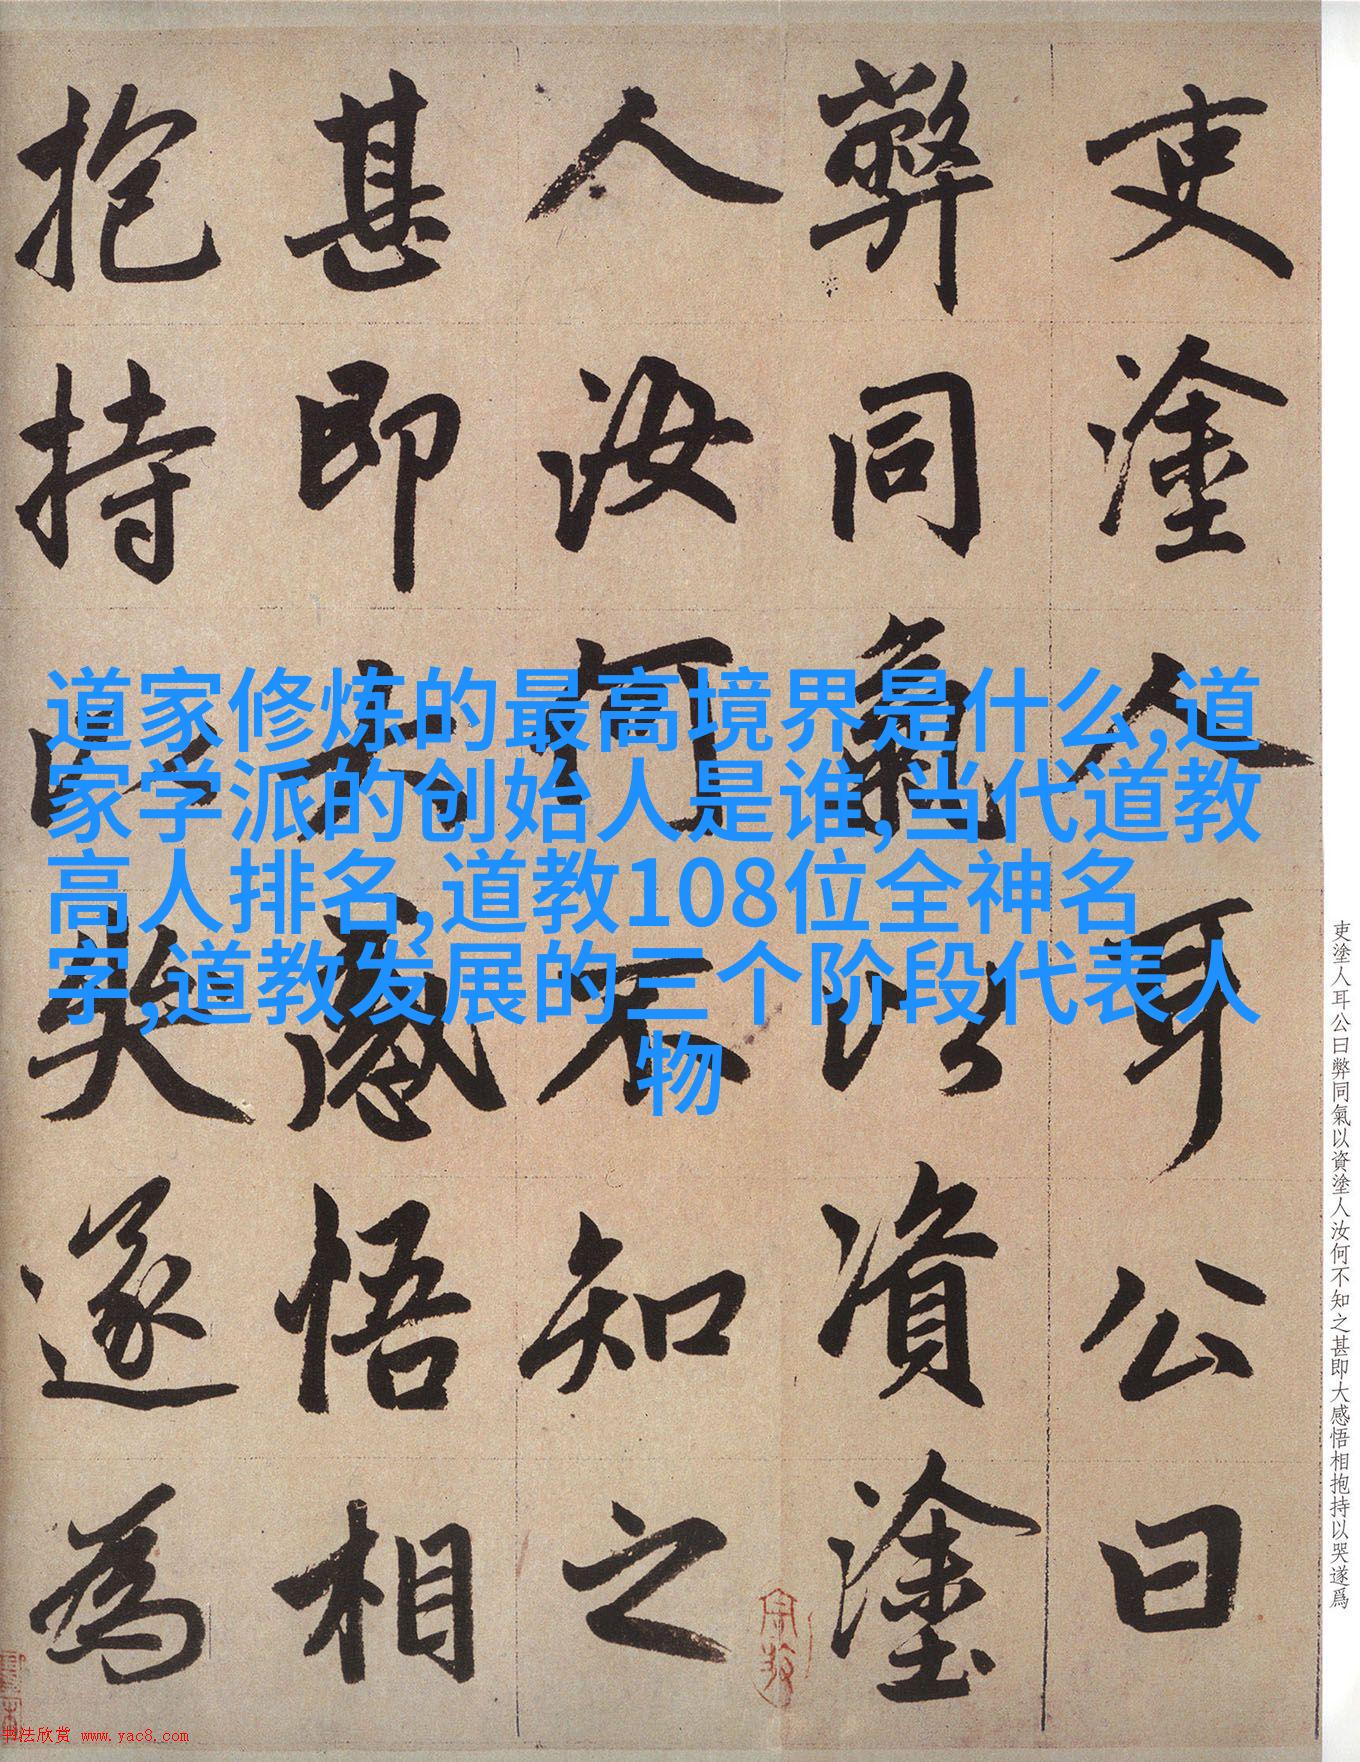 吏塗人耳公曰
弊同氣以資塗
人汝何不知之
甚即大感悟相
抱持以哭遂為
道家修炼的最高境界是什么,道
家学派的创始人是谁,当代道教
高人排名,道教108位全神名
字,道教发展的三个阶段代表人
物
吏塗人耳公曰弊同氣以資塗人汝何不知之甚即大感悟相抱持以哭遂爲
书法欣赏 www.yac8.com